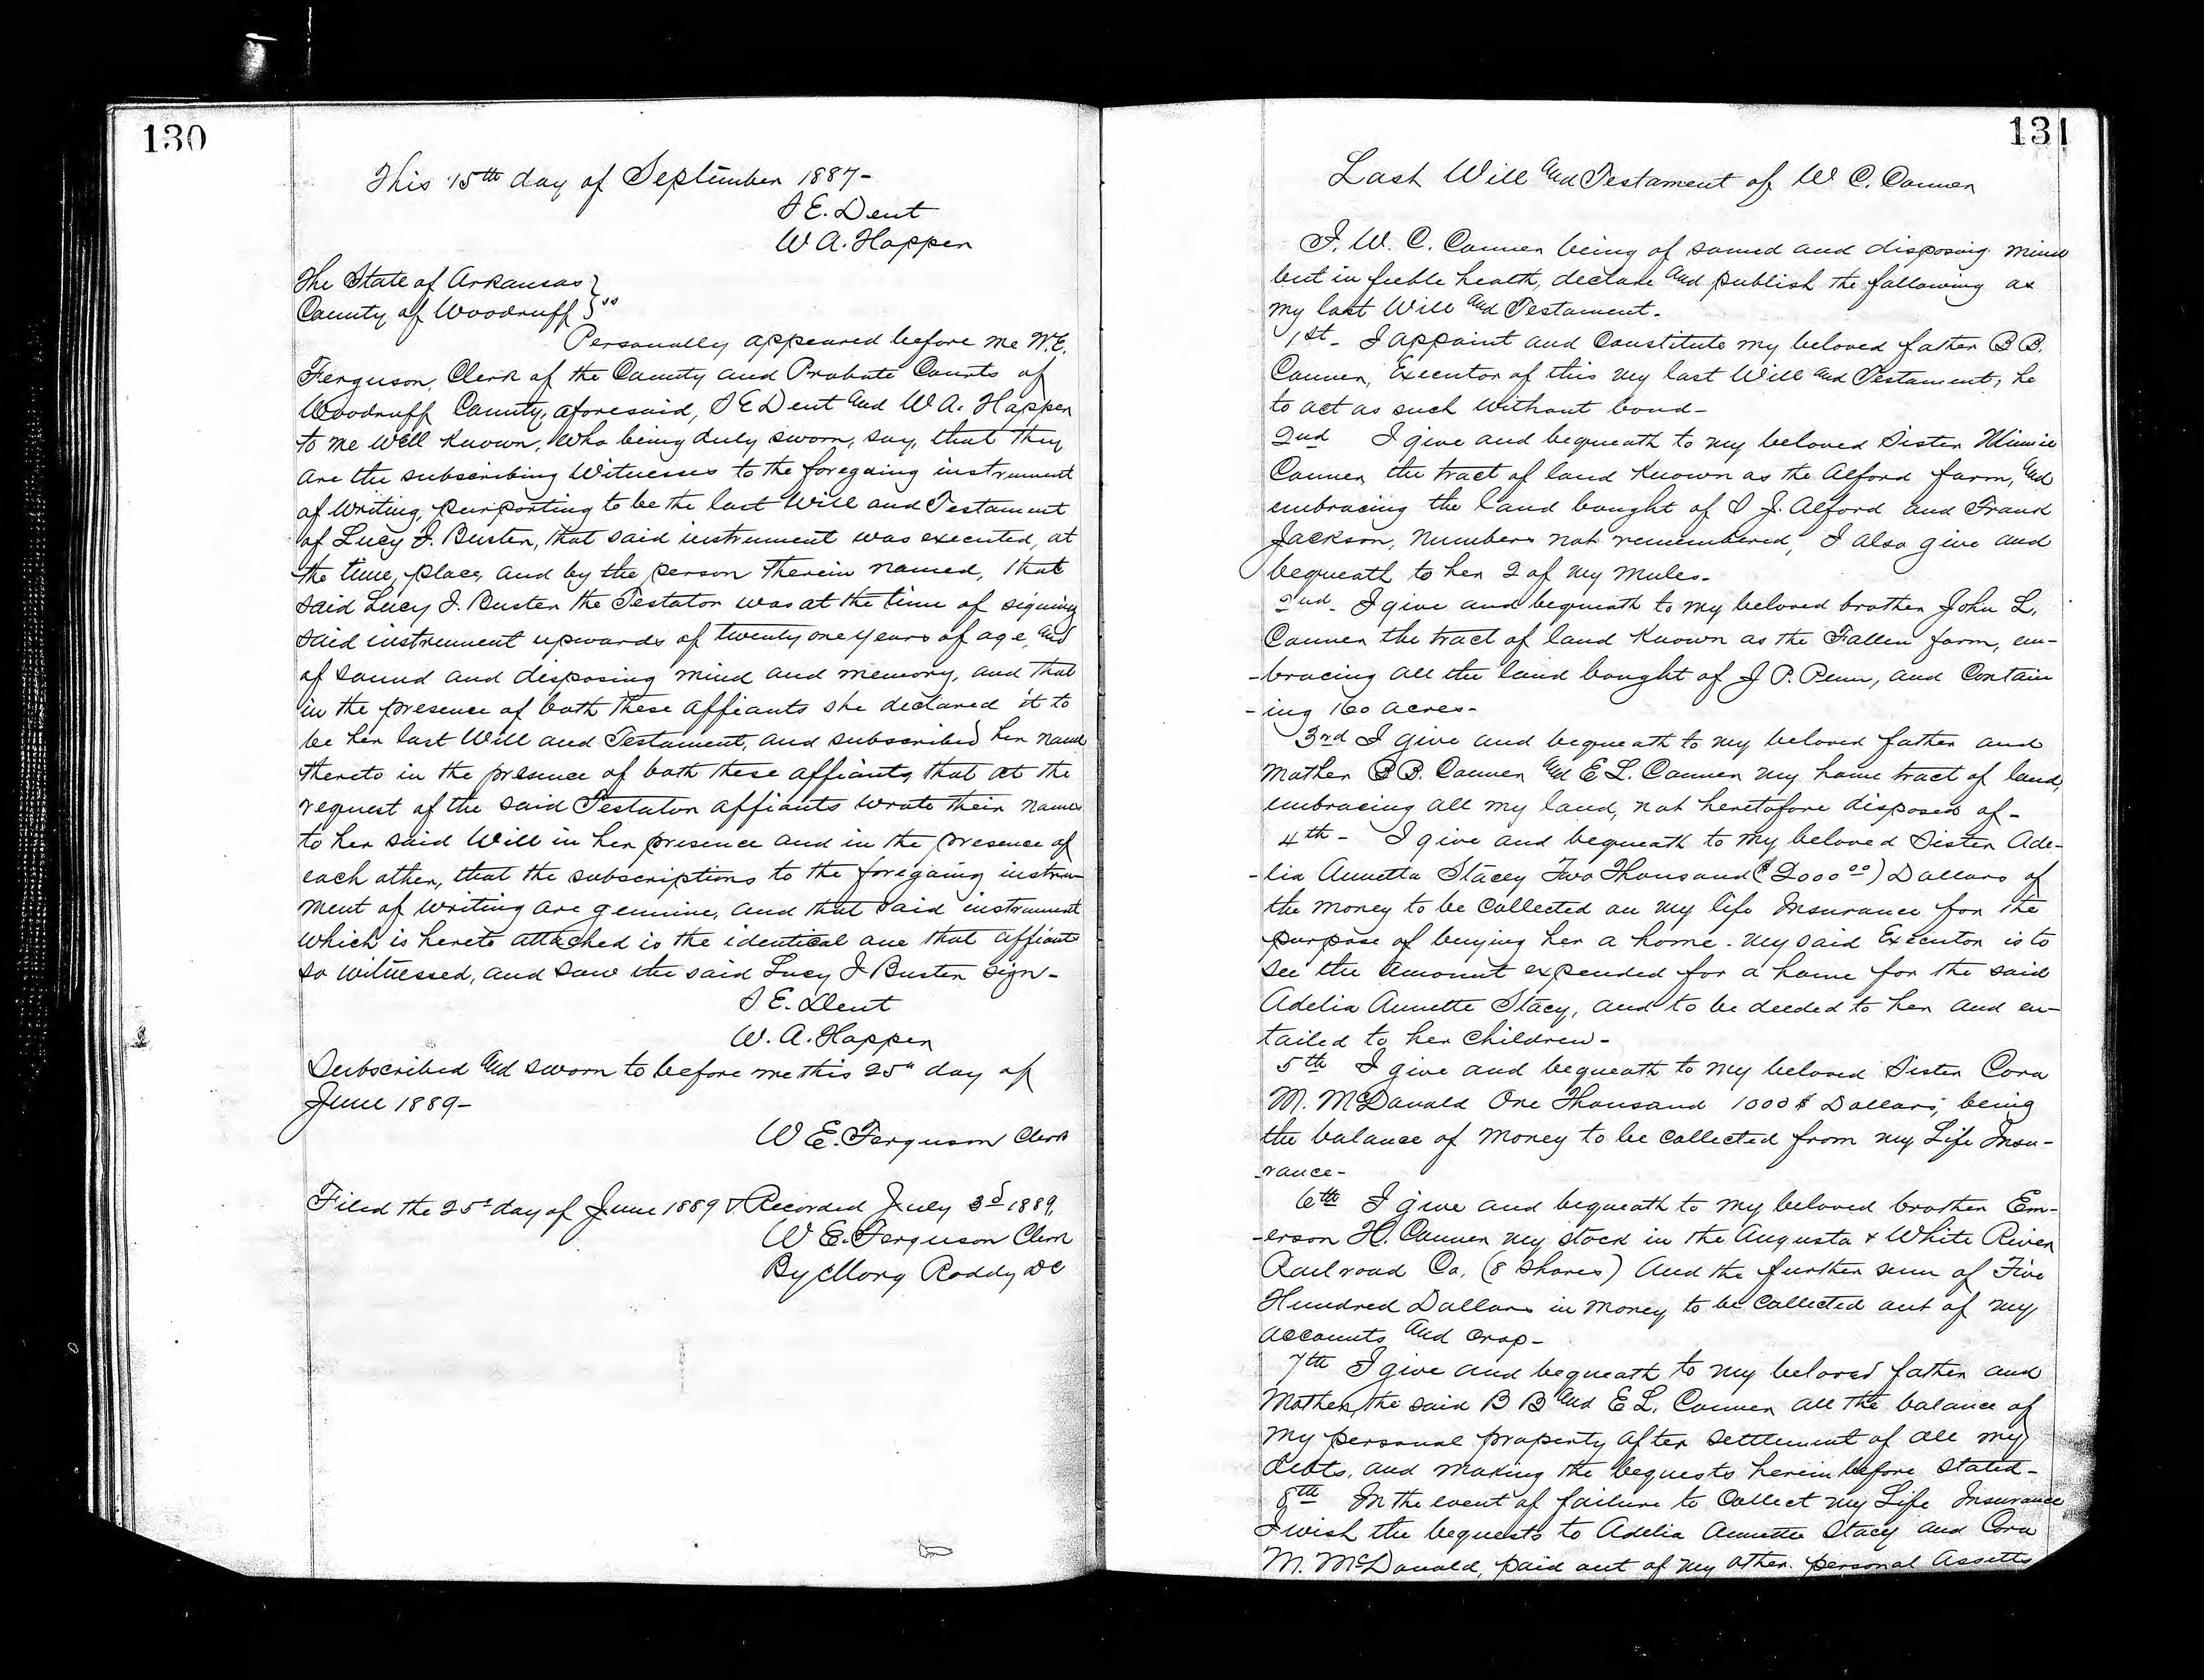 130
This 15th day of September 1887-
S E. Dent
W A. Happer
The State of Arkansas }
County of Woodruff } ss
Personally appeared before me W.E.
Ferguson, Clerk of the County and Probate Courts of
Woodruff County, aforesaid, S E Dent and W A. Happer
to me well known, who being duly sworn, say, that they
are the subscribing Witnesses to the foregoing instrument
of writing, purporting to be the last Will and Testament
of Lucy J. Buster, that said instrument was executed, at
the time, place, and by the person therein named, that
said Lucy J. Buster the Testator was at the time of signing
said instrument upwards of twenty one years of age, and
of sound and disposing mind and memory, and that
in the presence of both these affiants she declared it to
be her last Will and Testament, and subscribed her name
thereto in the presence of both these affiants, that at the
request of the said Testator affiants wrote their names
to her said Will in her presence and in the presence of
each other, that the subscriptions to the foregoing instru-
ment of writing are genuine, and that said instrument
which is hereto attached is the identical one that affiants
so witnessed, and saw the said Lucy J Buster sign-
S E. Dent
W. A. Happer
Subscribed and sworn to before me this 25" day of
June 1889-
W E. Ferguson Clerk
Filed the 25" day of June 1889 & Recorded July 3d 1889,
W E. Ferguson Clerk
By Morg Roddy DC
131
Last Will and Testament of W C. Conner
I. W. C. Conner being of sound and disposing mind
but in feeble health, declare and publish the following as
my last Will and Testament.
1st- I appoint and Constitute my beloved father B B.
Conner, Executor of this my last Will and Testament, he
to act as such without bond-
2nd I give and bequeath to my beloved Sister Minnie
Conner the tract of land known as the Alford farm, and
embracing the land bought of S J. Alford and Frank
Jackson, Numbers not remembered, I also give and
bequeath to her 2 of my mules-
2nd- I give and bequeath to my beloved brother John L.
Conner the tract of land known as the Fallen farm, em-
-bracing all the land bought of J P. Penn, and Contain
-ing 160 acres-
3rd I give and bequeath to my beloved father and
Mother B B. Conner and E L. Conner my home tract of land,
embracing all my land, not heretofore disposed of-
4th- I give and bequeath to my beloved Sister Ade-
-lia Annetta Stacey Two Thousand ($2000 00) Dollars of
the money to be Collected on my life Insurance for the
purpose of buying her a home. My said Executor is to
see the amount expended for a home for the said
Adelia Annette Stacy, and to be deeded to her and en-
tailed to her Children-
5th I give and bequeath to my beloved Sister Cora
M. McDonald One Thousand 1000$ Dollars, being
the balance of money to be collected from my Life Insu-
-rance-
6th I give and bequeath to my beloved brother Em-
-erson H. Conner my stock in the Augusta & White River
Railroad Co. (8 Shares) And the further sum of Five
Hundred Dollars in money to be Collected out of my
accounts and crop-
7th I give and bequeath to my beloved father and
Mother, the said B B and E L. Conner all the balance of
my personal property after settlement of all my
debts, and making the bequests herein before stated-
8th In the event of failure to Collect my Life Insurance
I wish the bequests to Adelia Annette Stacy and Cora
M. McDonald, paid out of my other personal Assetts